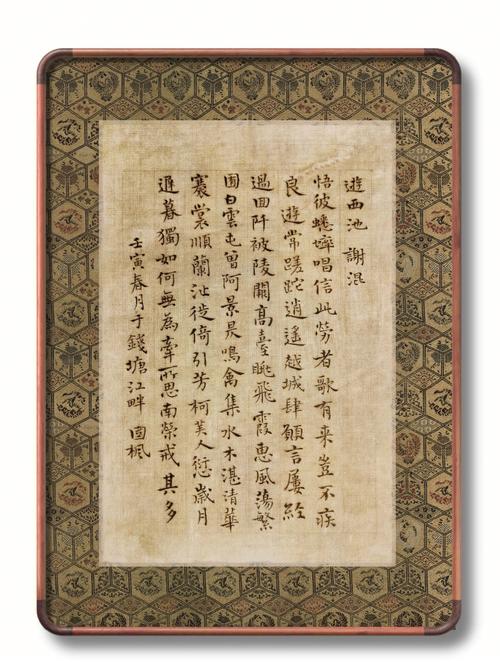 遊西池 謝混
悟彼蟋蟀唱信此勞者歌有来豈不疾
良遊常蹉跎逍遙越城肆願言屢經
過回阡被陵闕高臺眺飛霞惠風蕩繁
囿白雲屯曾阿景昃鳴禽集水木湛清華
褰裳順蘭沚徙倚引芳柯美人愆歲月
遲暮獨如何無為牽所思南榮戒其多
壬寅春月于錢塘江畔 楓